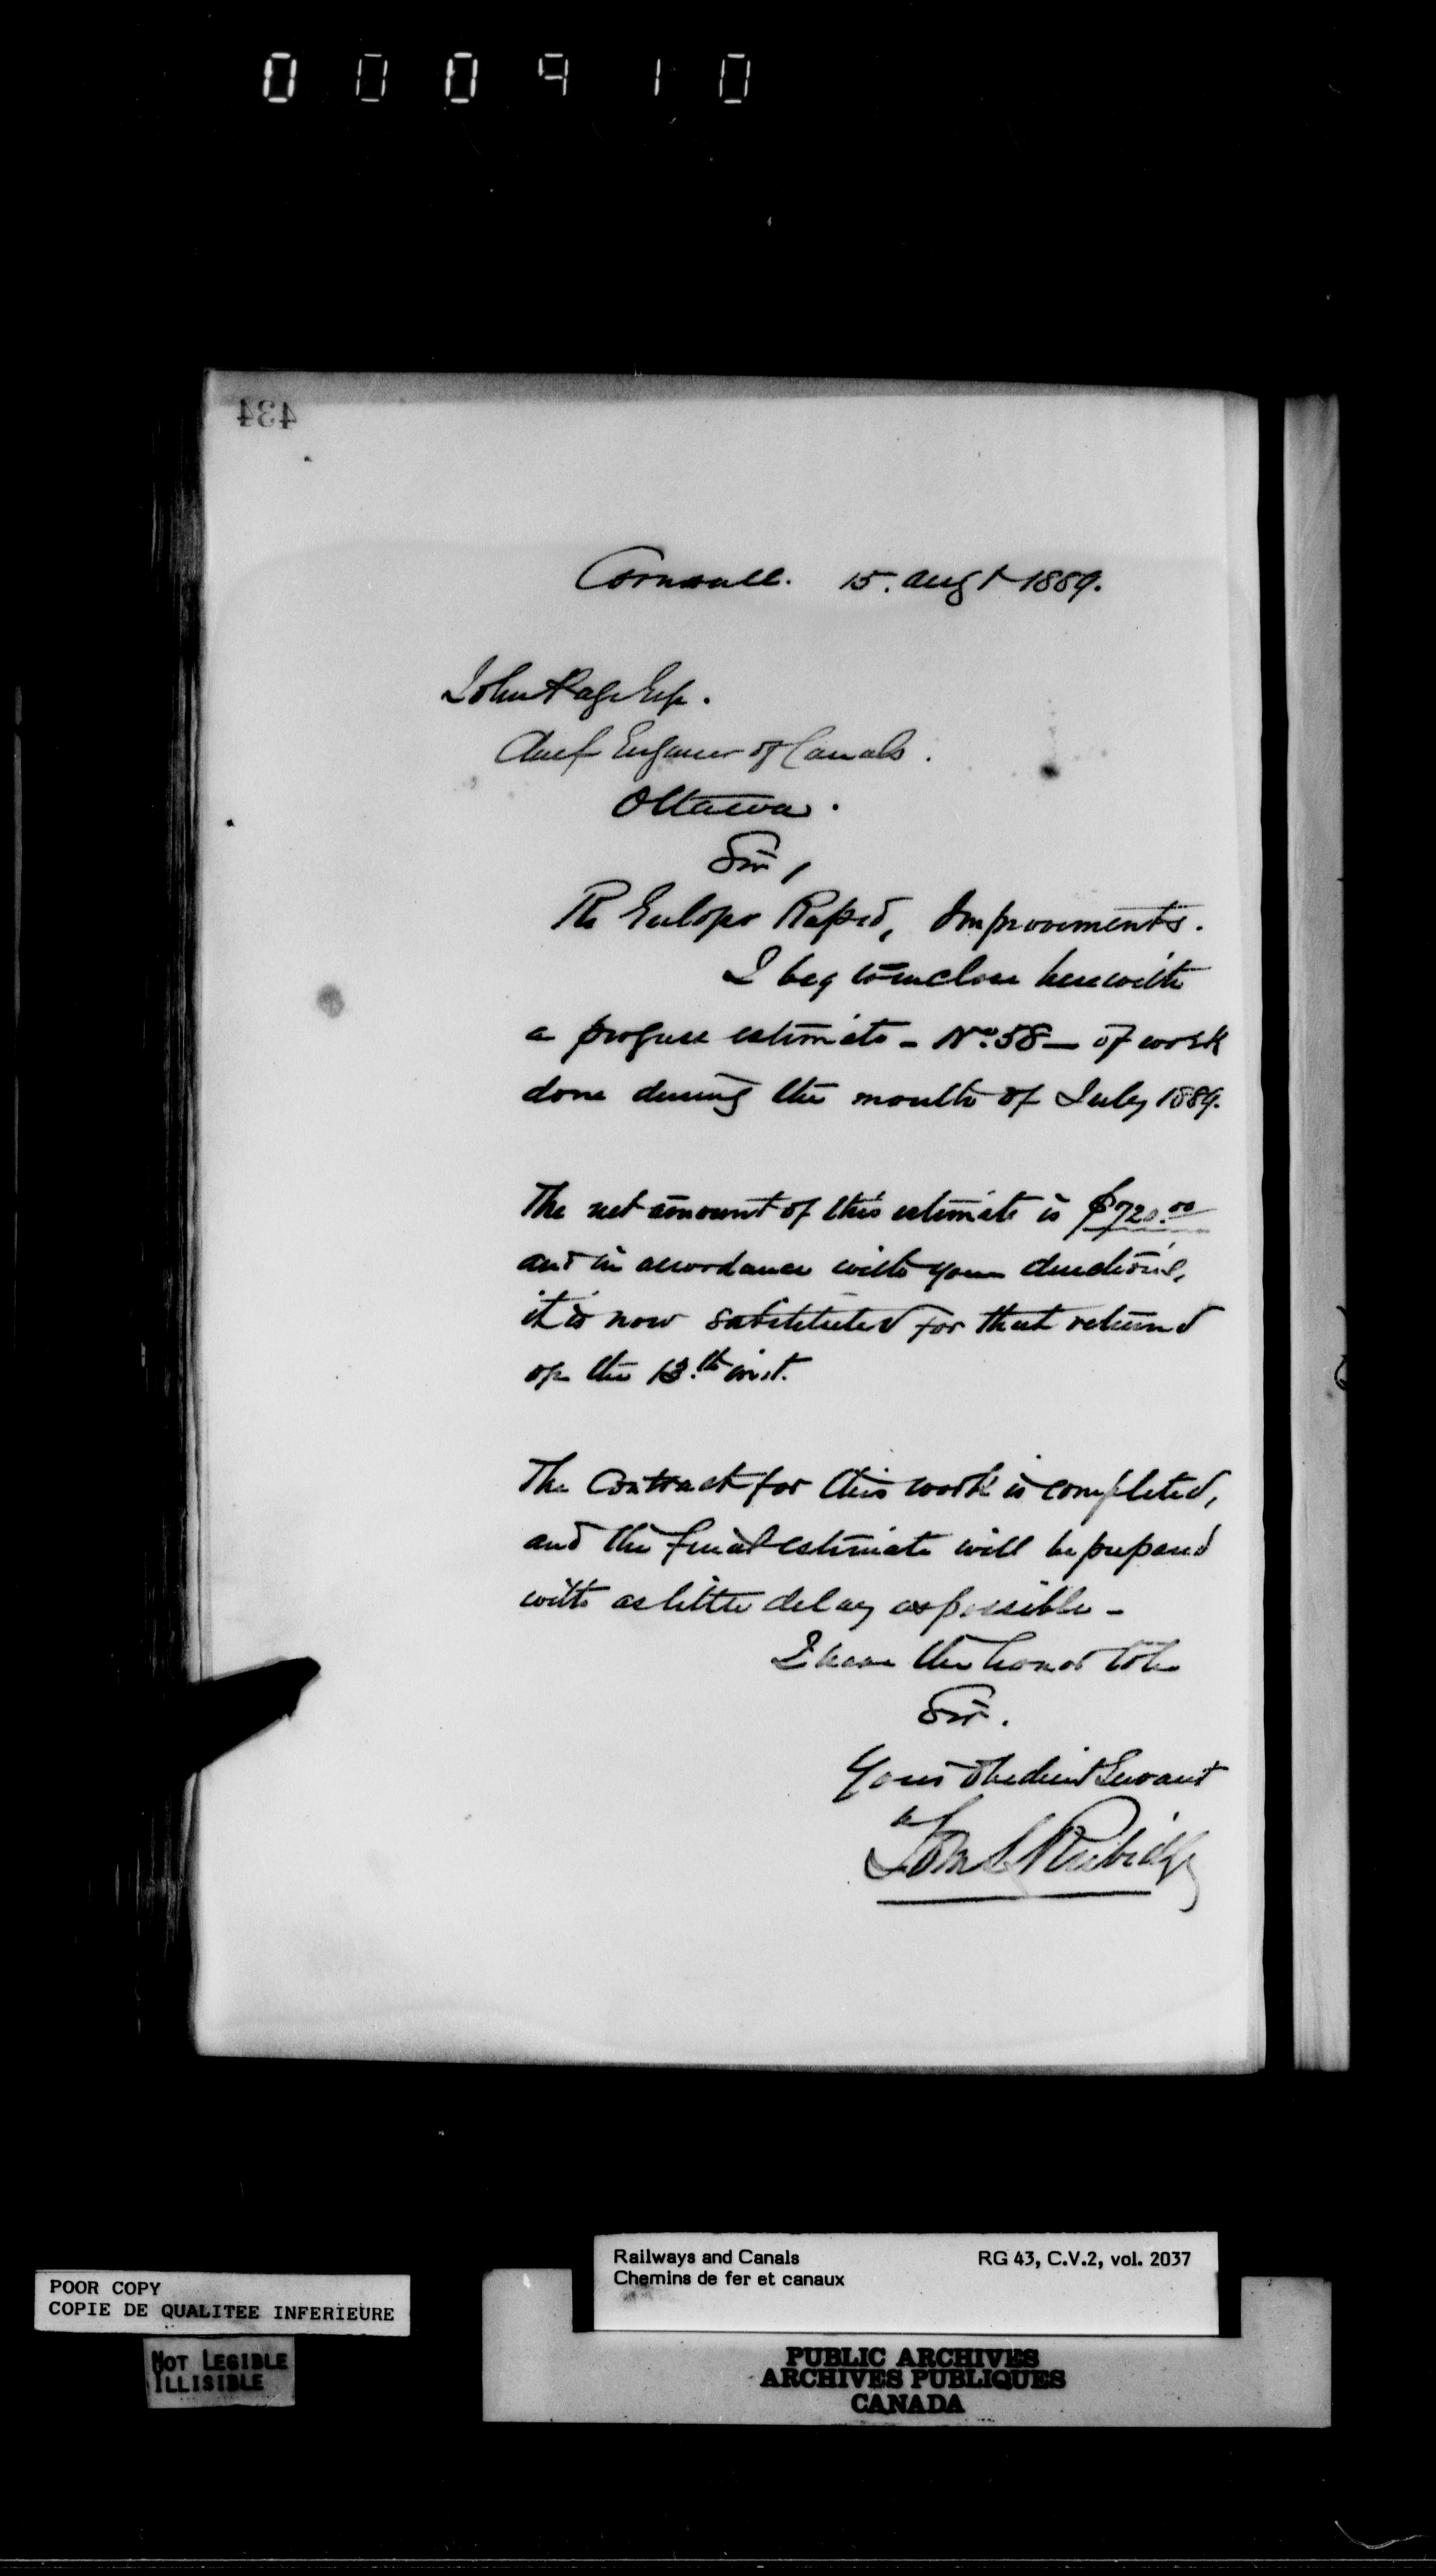 000910
434
Cornwall. 15. Augt 1889.
John Page Esq.
Chief Engineer of Canals.
Ottawa.
Sir,
Re Galops Rapid, Improvements.
I beg to inclose herewith
a progress estimate - No. 58 - of work
done during the month of July 1889.
The net amount of this estimate is $720.00
and in accordance with your directions,
it is now substituted for that returned
on the 13.th inst.
The Contract for this work is completed,
and the final estimate will be prepared
with as little delay as possible -
I have the honor to be
Sir.
Your obedient Servant
Tom S Rubidge
Railways and Canals RG 43, C.V.2, vol. 2037
Chemins de fer et canaux
POOR COPY
COPIE DE QUALITEE INFERIEURE
NOT LEGIBLE
ILLISIBLE
PUBLIC ARCHIVES
ARCHIVES PUBLIQUES
CANADA